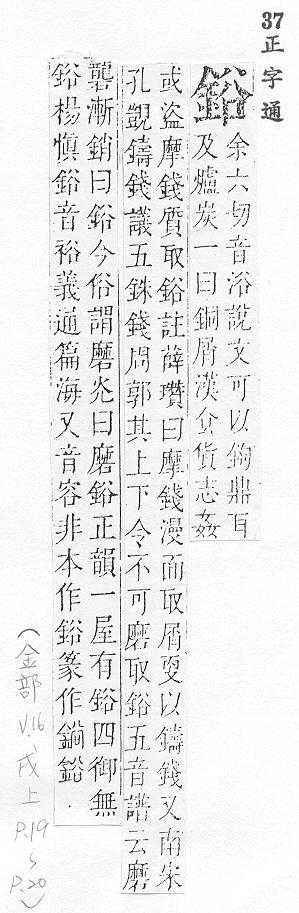 37正字通
鋊
余六切音浴說文可以鉤鼎耳
及爐炭一曰銅屑漢食貨志姦
或盜摩錢質取鋊註薛瓚曰摩錢漫面取屑更以鑄錢又南宋
孔覬鑄錢議五銖錢周郭其上下令不可磨取鋊五音譜云磨
礱漸銷曰鋊今俗謂磨光曰磨鋊正韻一屋有鋊四御無
鋊楊慎鋊音裕義通篇海又音容非本作鋊篆作
(金部
V.16、
戌上
P.19
~
P.20)